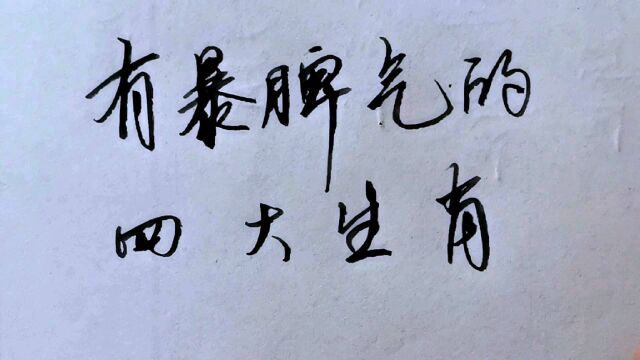 有暴脾气的
四大生肖